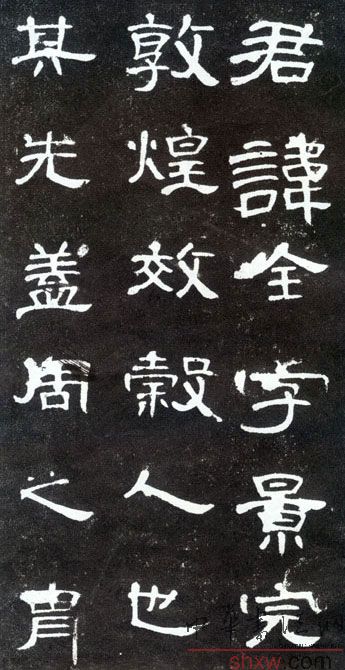 君諱全字景完
敦煌效穀人也
其先蓋周之胄
中华书法网
shxw.com